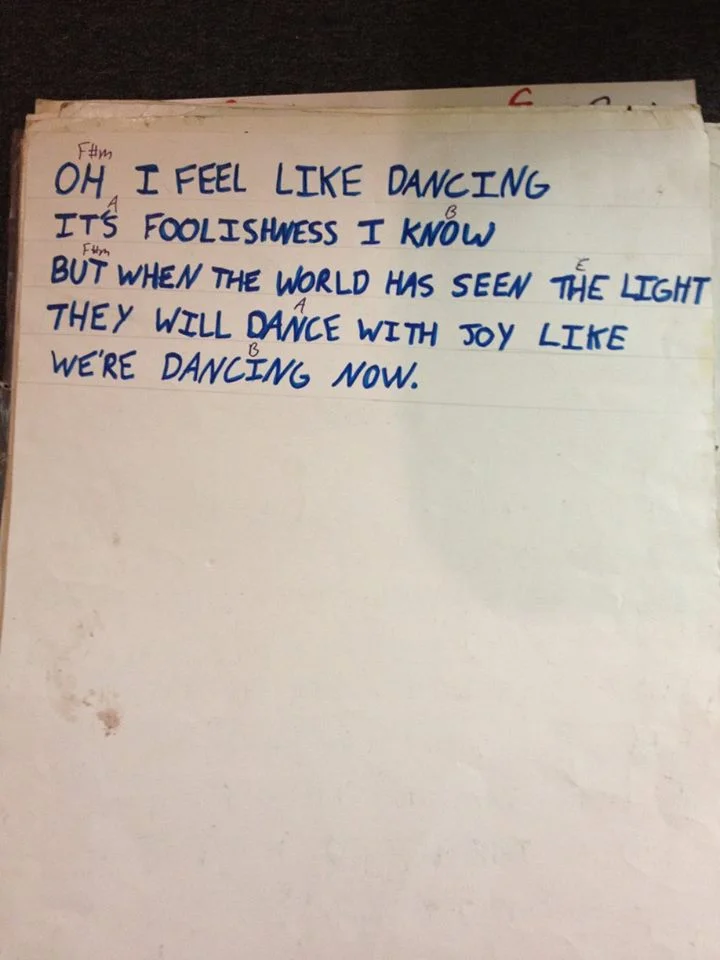 F#m
OH I FEEL LIKE DANCING
A B
ITS FOOLISHNESS I KNOW
F#m E
BUT WHEN THE WORLD HAS SEEN THE LIGHT
A
THEY WILL DANCE WITH JOY LIKE
B
WE'RE DANCING NOW.